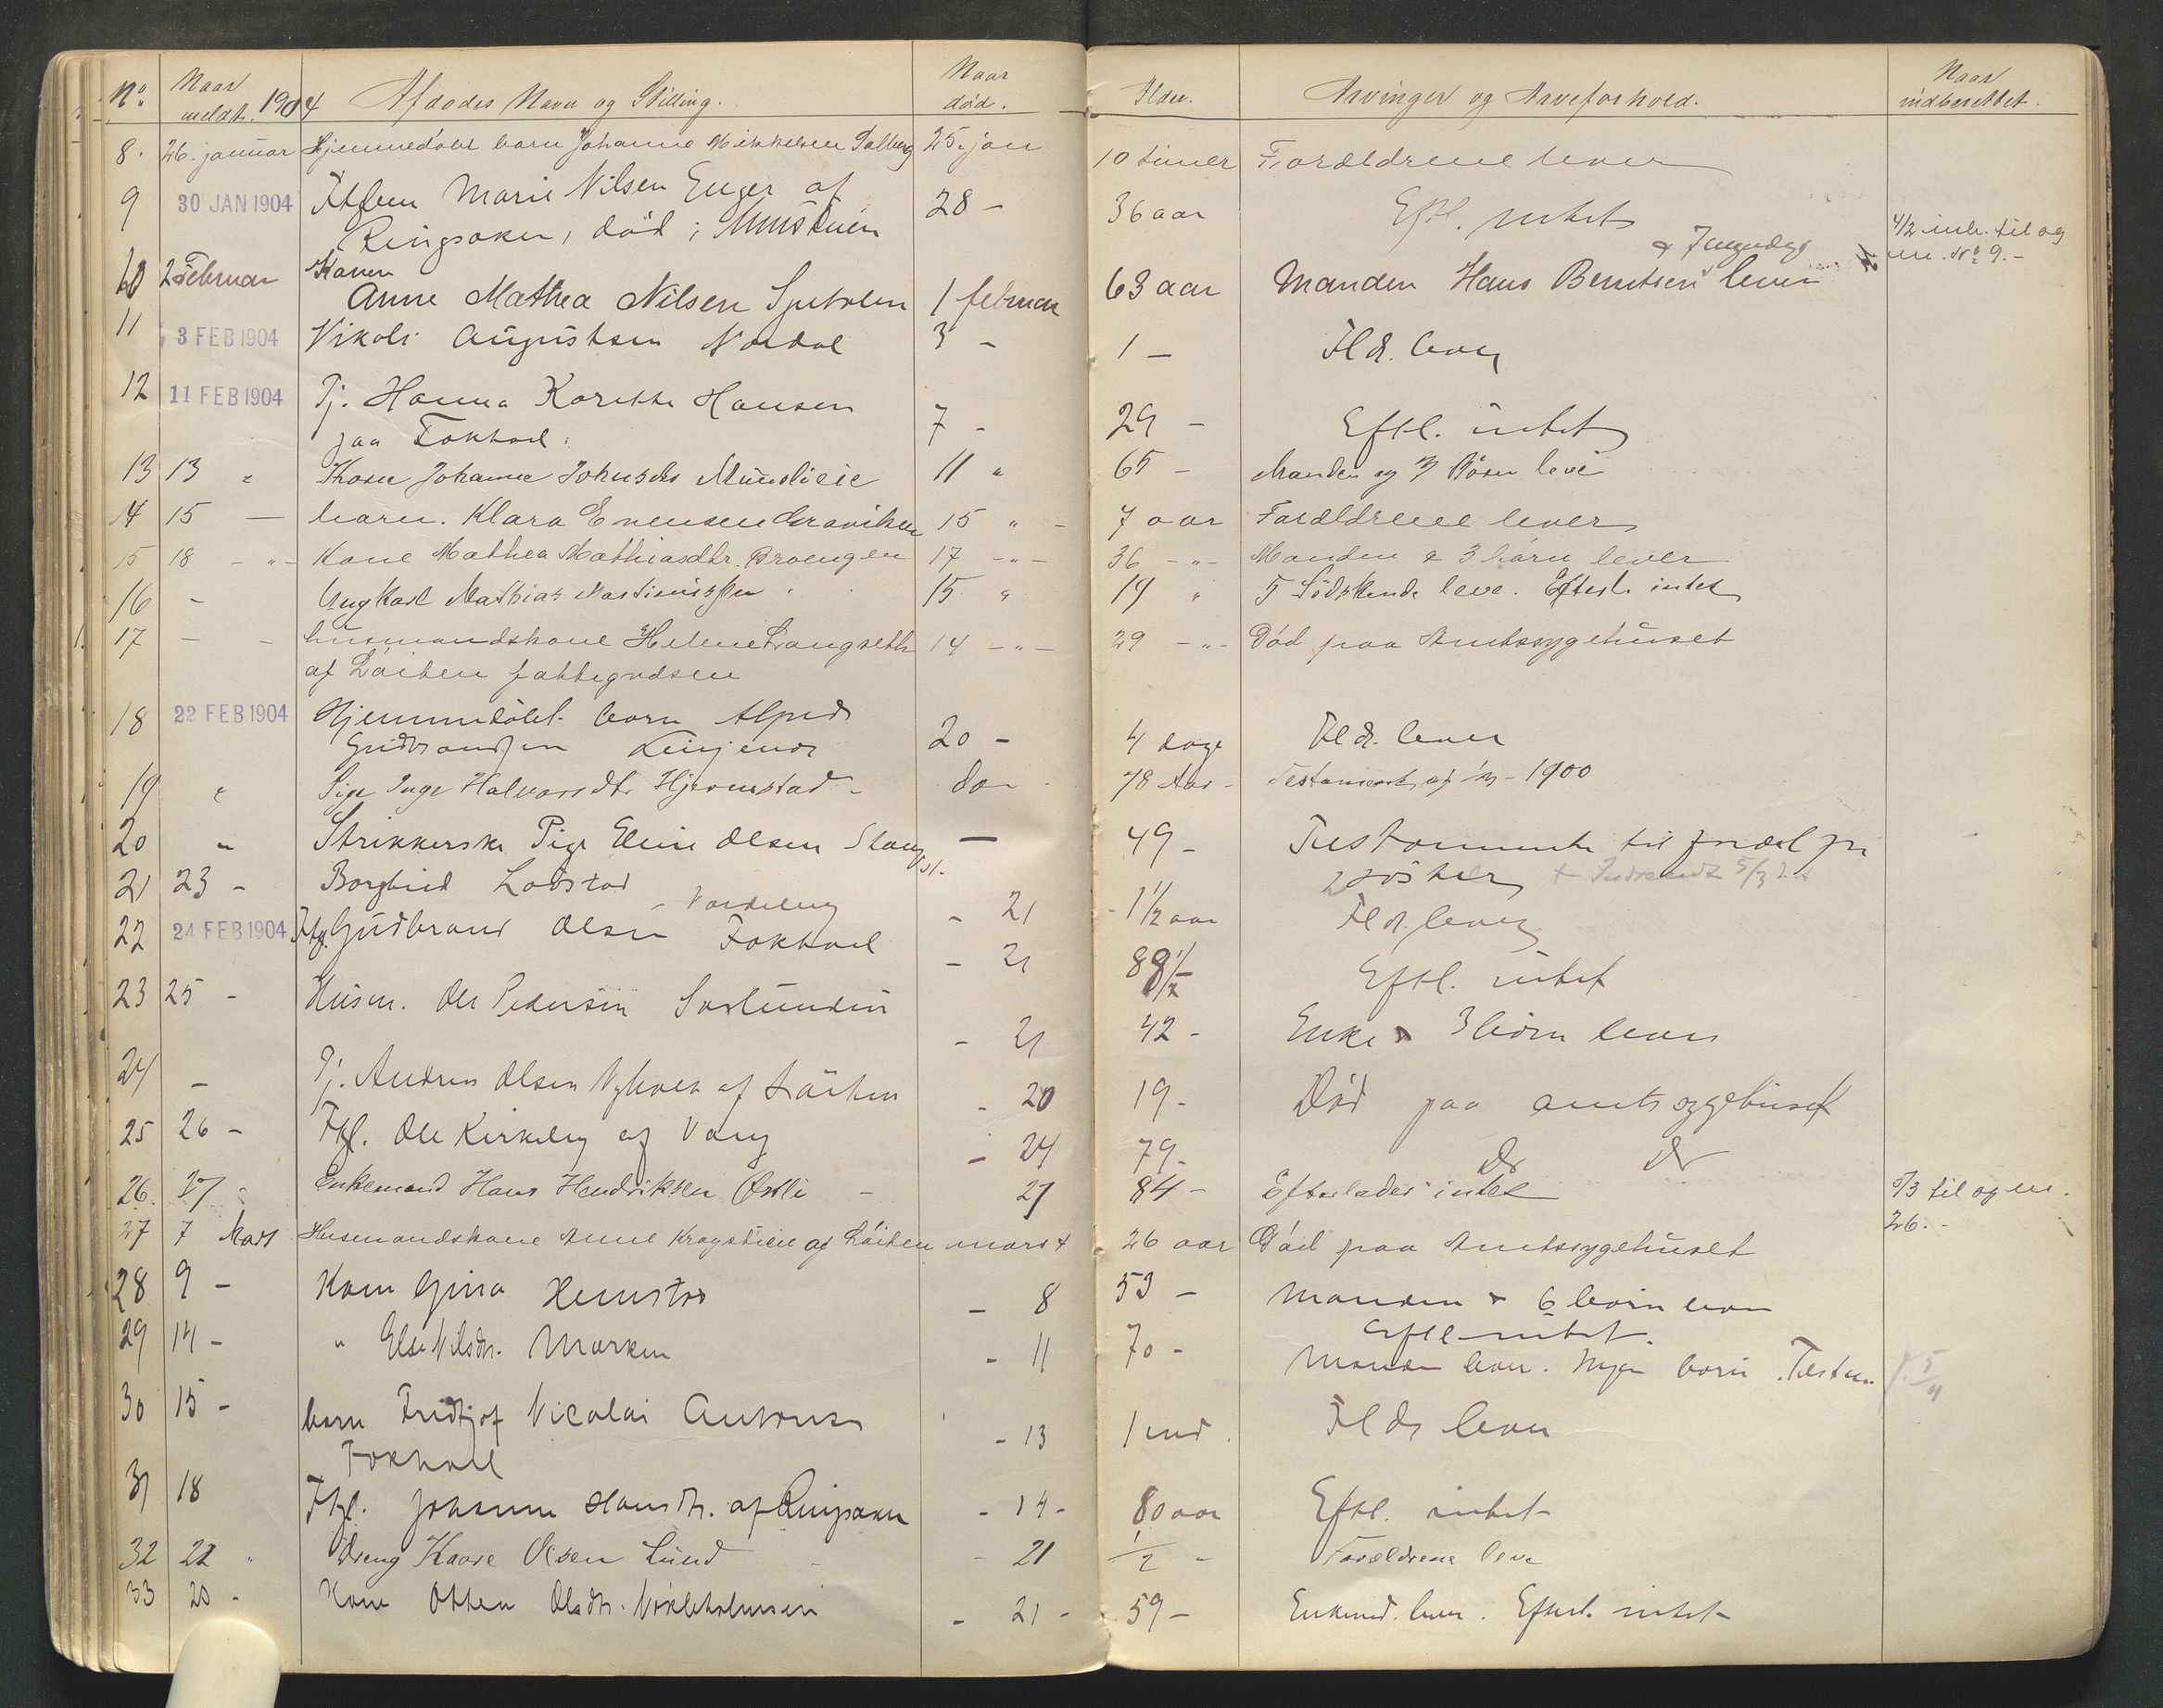 No. Naar meldt. 1904 Afdødes Navn og Stilling. Naar død. Alder. Arvinger og Arveforhold. Naar indberettet.
8. 26. januar Hjemmedøbt barn Johanne Mikkelsen 25. jan 10 timer Forældrene lever
9 30 JAN 1904 Marie Nilsen Enger af 28 - 36 aar Eftl. intet
Ringsaker, død i 4/2 inb. til og
Konen & 7 myndige m. No 9. -
10 2 Februar Anne Mathea Nilsen 1 februar 63 aar Manden Hans Berntsen lever
11 3 FEB 1904 Augustsen Nordal 3 - 1 - Fldr. lever
12 11 FEB 1904 Pj. Hanna Hansen 7 - 29 - Eftl. intet
paa Fokhol.
13 13 " Kone Johanne 11 " 65 - Manden og Børn leve
14 15 — barn. Klara Evensen 15 " - 7 aar Forældrene lever
15 18 - " - Kone Mathea Mathiasdtr. Broengen 17 - " - 36 - " - Manden & 3 barn lever
16 - Ungkarl Mathias 15 " 19 " 5 Södskende leve. Efterl. intet
17 — - husmandskone Helene Langseth 14 - " - 29 - " - Død paa Amtssygehuset
af Löiten fattegodsen
18 22 FEB 1904 Hjemmedöbt barn Alfred
Gudbrandsen 20 - 4 dage Fldr. lever
19 " Pige Inge Halvorsdtr Hjermstad - do - 78 Aar - Testament af 1900
20 " Strikkerske Pige Eline Olsen Stang — 49 - Testamente til fordel for
2 søstre
21 23 - Borghild Lodstad - 21 - 1 1/2 aar Fldr. lever
22 24 FEB 1904 Ftgl. Gudbrand Olsen Fokhol - 21 88 1/2 Eftl. intet
23 25 - Husm. Ole Pedersen - 21 42 - Enke & 3 börn lever
24 - Pj. Andrea Olsen Nyholt af Löiten - 20 19 - Död paa amtssygehuset
25 26 - Ftgl. Ole Kirkeby af Vang - 24 79 - Do Do
26. 27 " Enkemand Hans Hendriksen Østli - 27 84 - Efterlader intet /3 til og m.
26. -
27 7 Mars Husmandskone Anne af Löiten mars 4 26 aar Död paa Amtssygehuset
28 9 - Kone Gina Hemstad - 8 53 - Manden & 6 börn lever
Eftl intet.
29 14 - " Else Nilsdtr. Marken - 11 70 - Manden lever. Ingen börn. Testam.
30 15 - barn Fridtjof Nicolai Antonsen - 13 1 md. Fldr lever
Fokhol
31 18 Ftgl. Johanne Hansdtr. af Ringsaker - 14 - 80 aar Eftl. intet
32 22 " Dreng Kaare Olsen Lund - - 21 1/2 " Forældrene leve
33 20 - Kone Oldtr. - 21 - 59 - Enkemd. lever. Efterl. intet